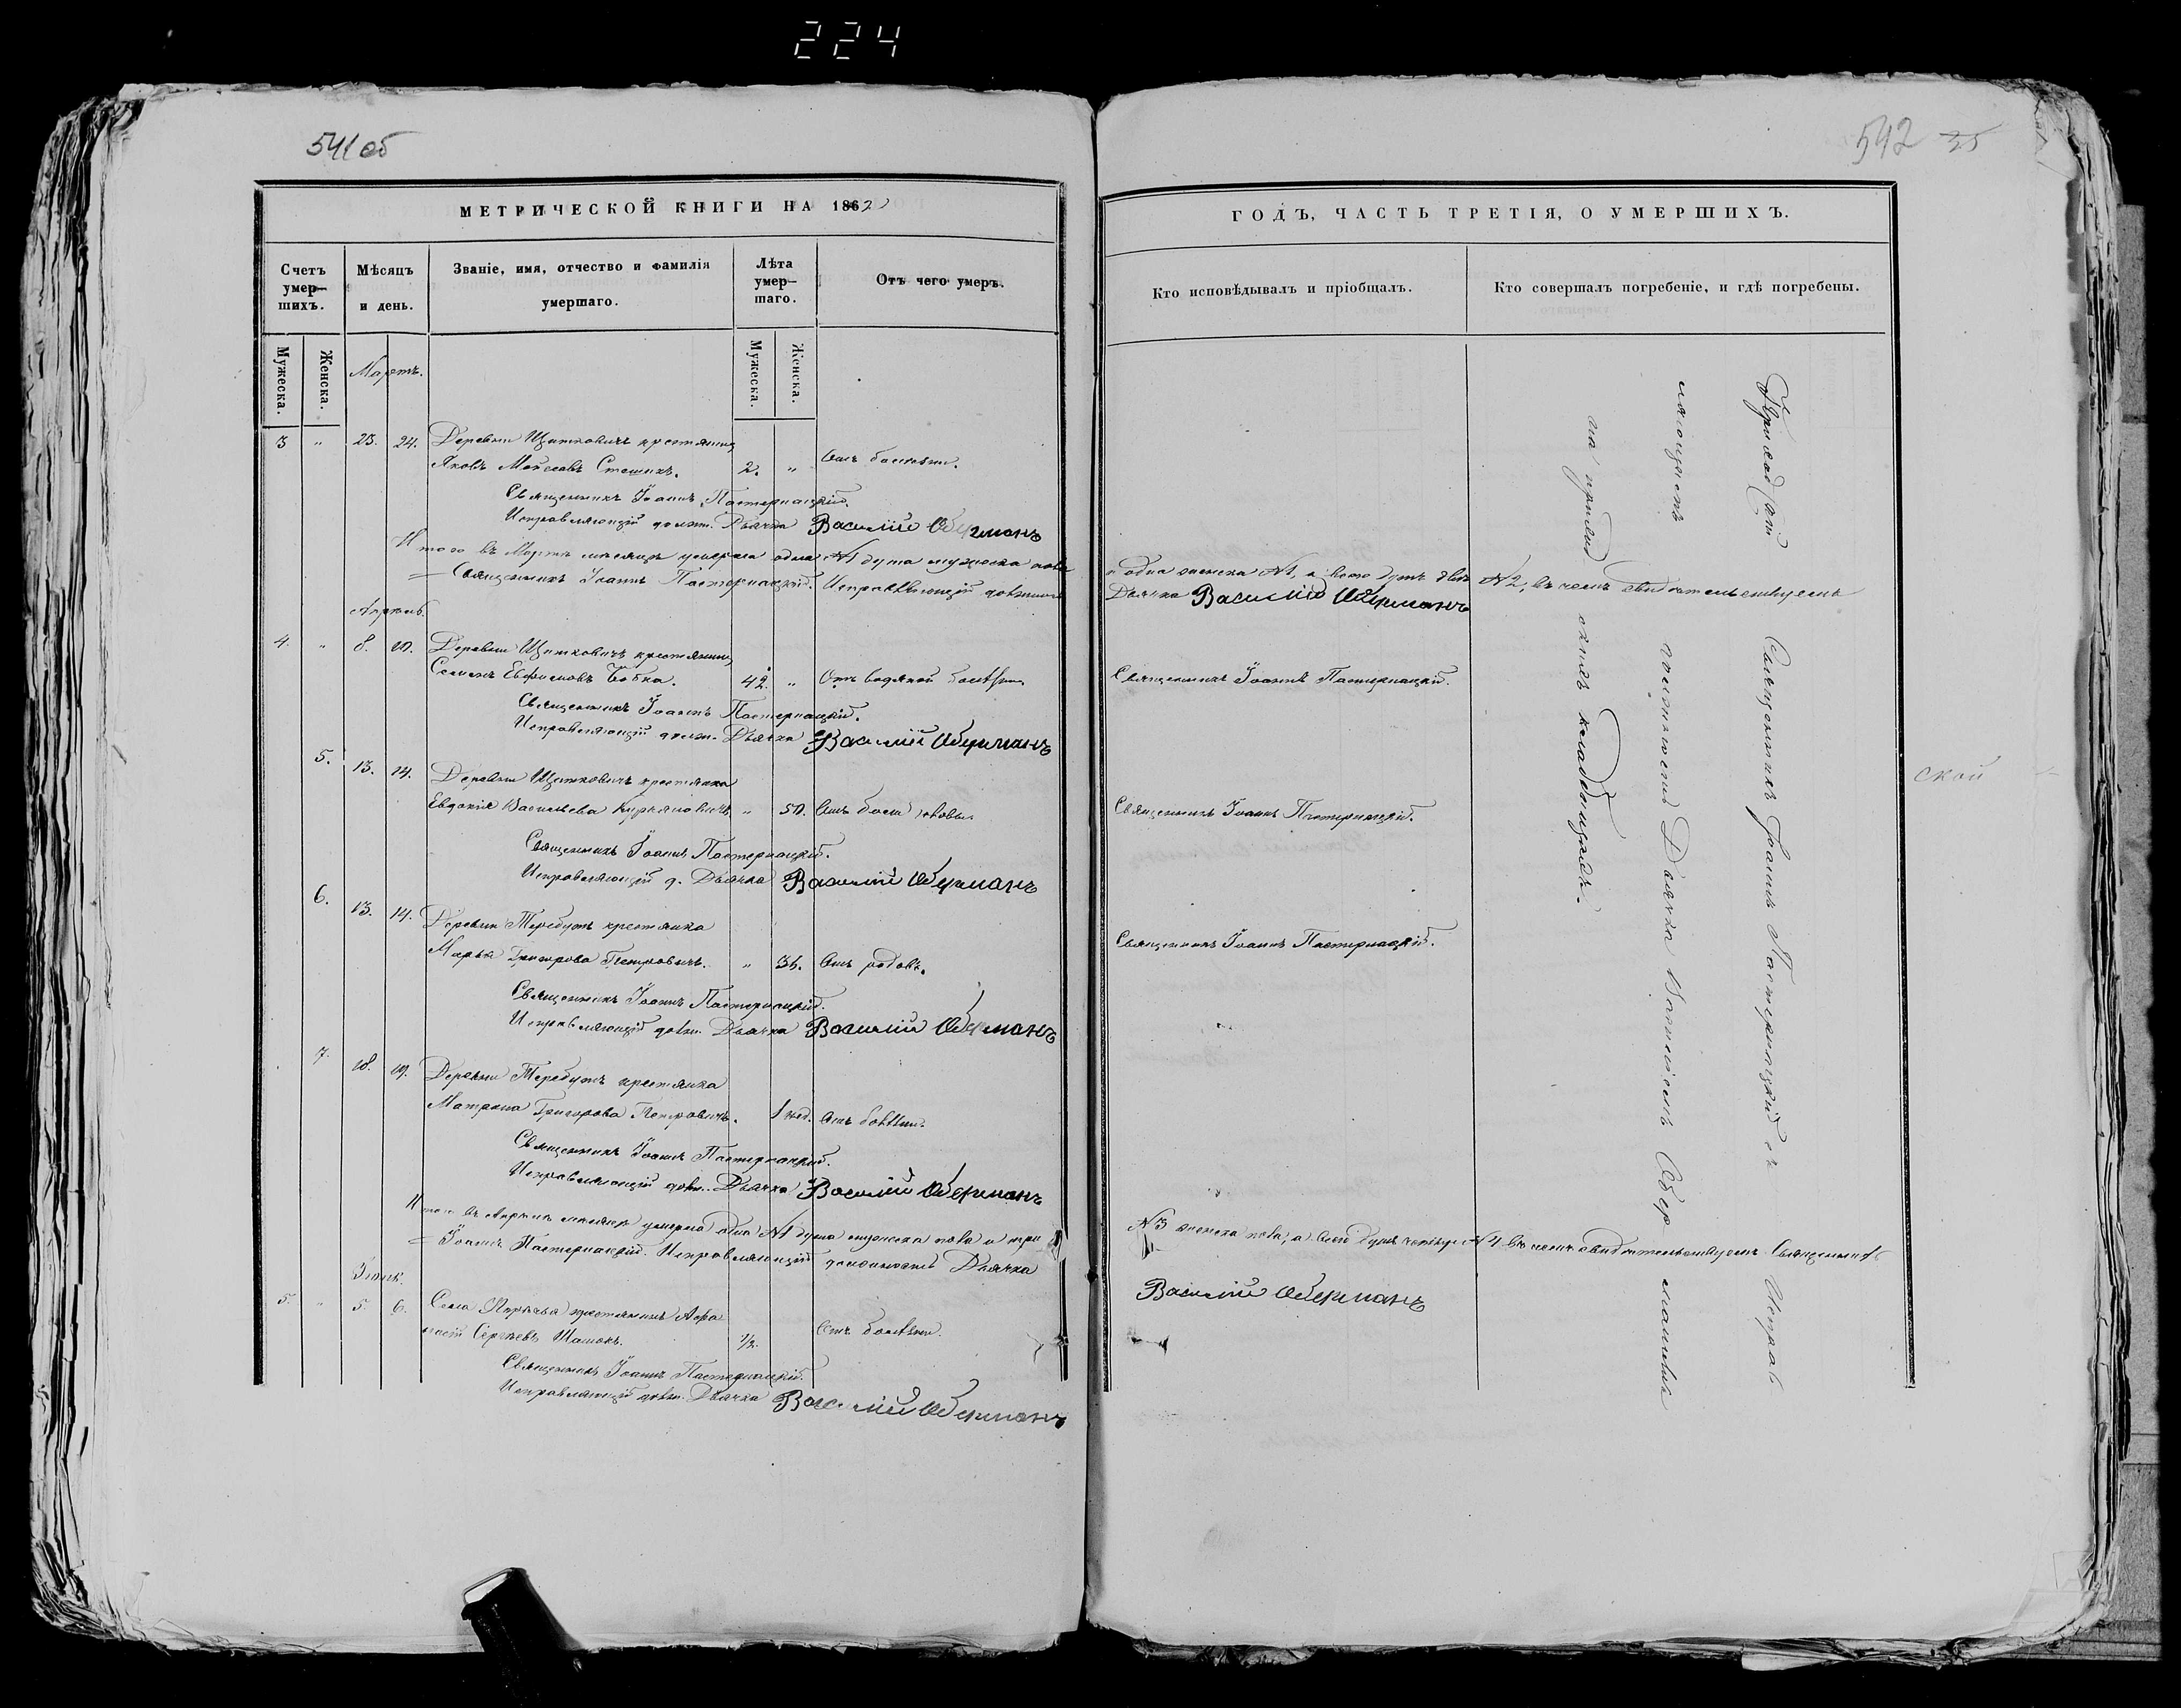 224
541 об
МЕТРИЧЕСКОЙ КНИГИ НА 1862
Счетъ умер-шихъ.
Мѣсяцъ и день.
Званіе, имя, отчество и фамилія умершаго.
Лѣта умер-шаго.
Отъ чего умеръ.
Мужеска.
Женска.
Мужеска.
Женска.
Мартъ.
3 " 23. 24. Деревни Щитковичъ крестянинъ
Яковъ Мойсеевъ 2. " Отъ болѣзни.
Священникъ Іоаннъ Пастернацкій.
Исправляющій должн. Дьячка Василій Оберманъ
Итого въ Мартѣ мѣсяцѣ умерла одна №1 душа мужеска пола
Священникъ Іоаннъ Пастернацкій. Исправляющій должность
Апрѣль.
4. " 8. 10. Деревни Щитковичъ крестянинъ
Семенъ Евфимовъ Бобка. 42. " Отъ водяной болѣзни
Священникъ Іоаннъ Пастернацкій.
Исправляющій должн. Дьячка Василій Оберманъ
5. 13. 14. Деревни Щитковичъ крестянка
Евдокія Васильева " 50. Отъ боли
Священникъ Іоаннъ Пастернацкій.
Исправляющій д. Дьячка Василій Оберманъ
6. 13. 14. Деревни Теребутъ крестянка
Марья Григорова Петровичъ. " 35. Отъ родовъ.
Священникъ Іоаннъ Пастернацкій.
Исправляющій должн. Дьячка Василій Оберманъ
7. 18. 19. Деревни Теребутъ крестянка
Матрона Григорова Петровичъ. 1 нед. Отъ болѣзни.
Священникъ Іоаннъ Пастернацкій.
Исправляющій должн. Дьячка Василій Оберманъ
Итого въ Апрѣлѣ мѣсяцѣ умерла одна №1 душа мужеска пола и три
Іоаннъ Пастернацкій. Исправляющій должность Дьячка
5. " 5. 6. Села крестянинъ Афа
насій Сергѣевъ 1/2. Отъ болѣзни.
Священникъ Іоаннъ Пастернацкій.
Исправляющій должн. Дьячка Василій Оберманъ
542
ГОДЪ, ЧАСТЬ ТРЕТІЯ, О УМЕРШИХЪ.
Кто исповѣдывалъ и пріобщалъ.
Кто совершалъ погребеніе, и гдѣ погребены.
и одна женска №1, а всего душъ двѣ №2, въ чемъ свидѣтельствуемъ
Дьячка Василій Оберманъ
Священникъ Іоаннъ Пастернацкій.
Священникъ Іоаннъ Пастернацкій.
Священникъ Іоаннъ Пастернацкій.
№3 женска пола, а всего душъ четыре №4 въ чемъ свидѣтельствуемъ Священникъ
Василій Оберманъ
Священникъ Іоаннъ Пастернацкій съ Исправ
ляющимъ должность Дьячка Василіемъ Оберманомъ
на приход кладбищахъ.
ской